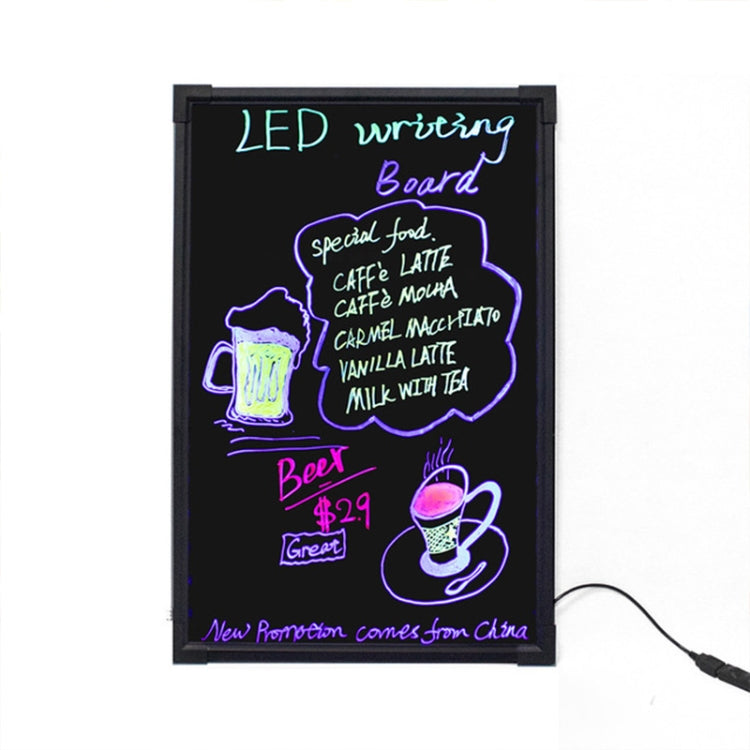 LED writing
Board
special food.
CAFFè LATTE
CAFFè MOCHA
CARMEL MACCHIATO
VANILLA LATTE
MILK WITH TEA
Beer
$2.9
Great
New Promotion comes from China